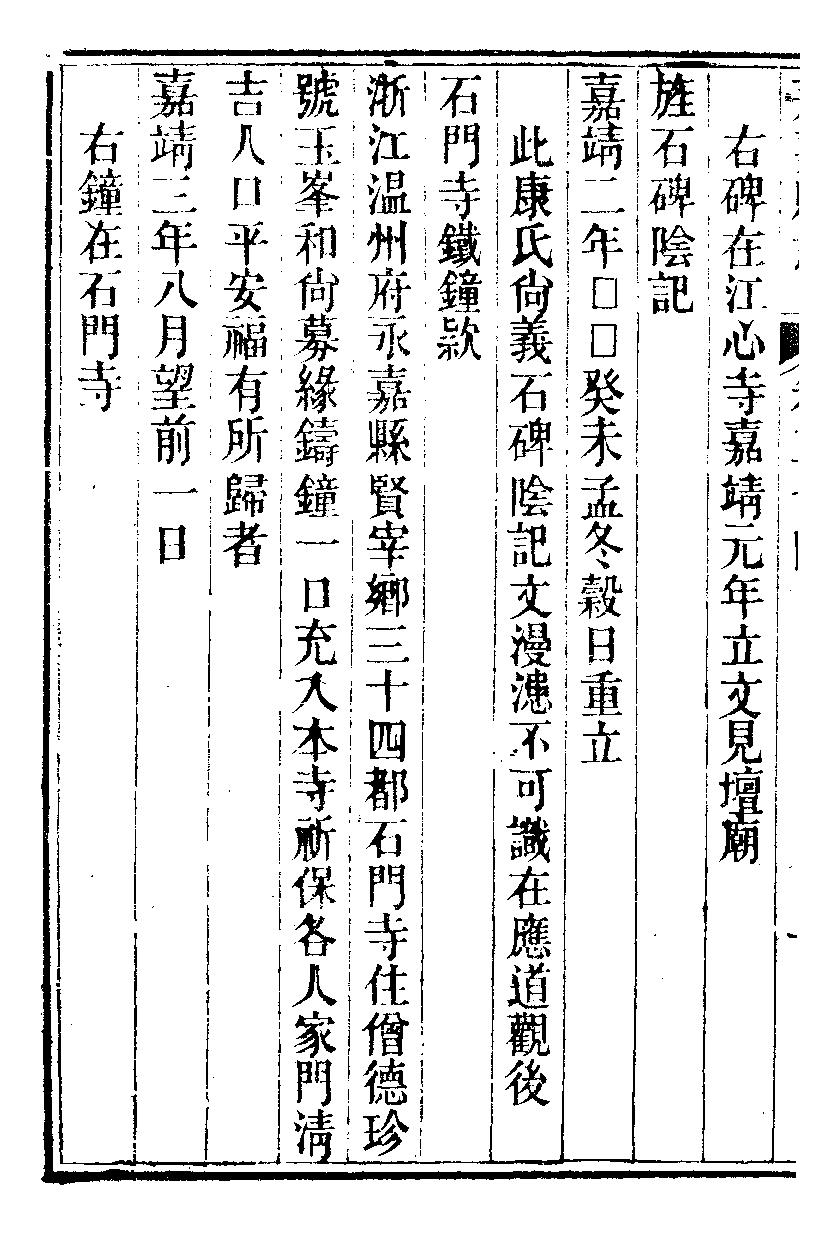 右碑在江心寺嘉靖元年立文見壇廟
旌石碑陰記
嘉靖二年□□癸未孟冬穀日重立
此康氏尙義石碑陰記文漫漶不可識在應道觀後
石門寺鐵鐘款
浙江温州府永嘉縣賢宰鄉三十四都石門寺住僧德珍
號玉峯和尙募緣鑄鐘一口充入本寺祈保各人家門淸
吉人口平安福有所歸者
嘉靖三年八月望前一日
右鐘在石門寺